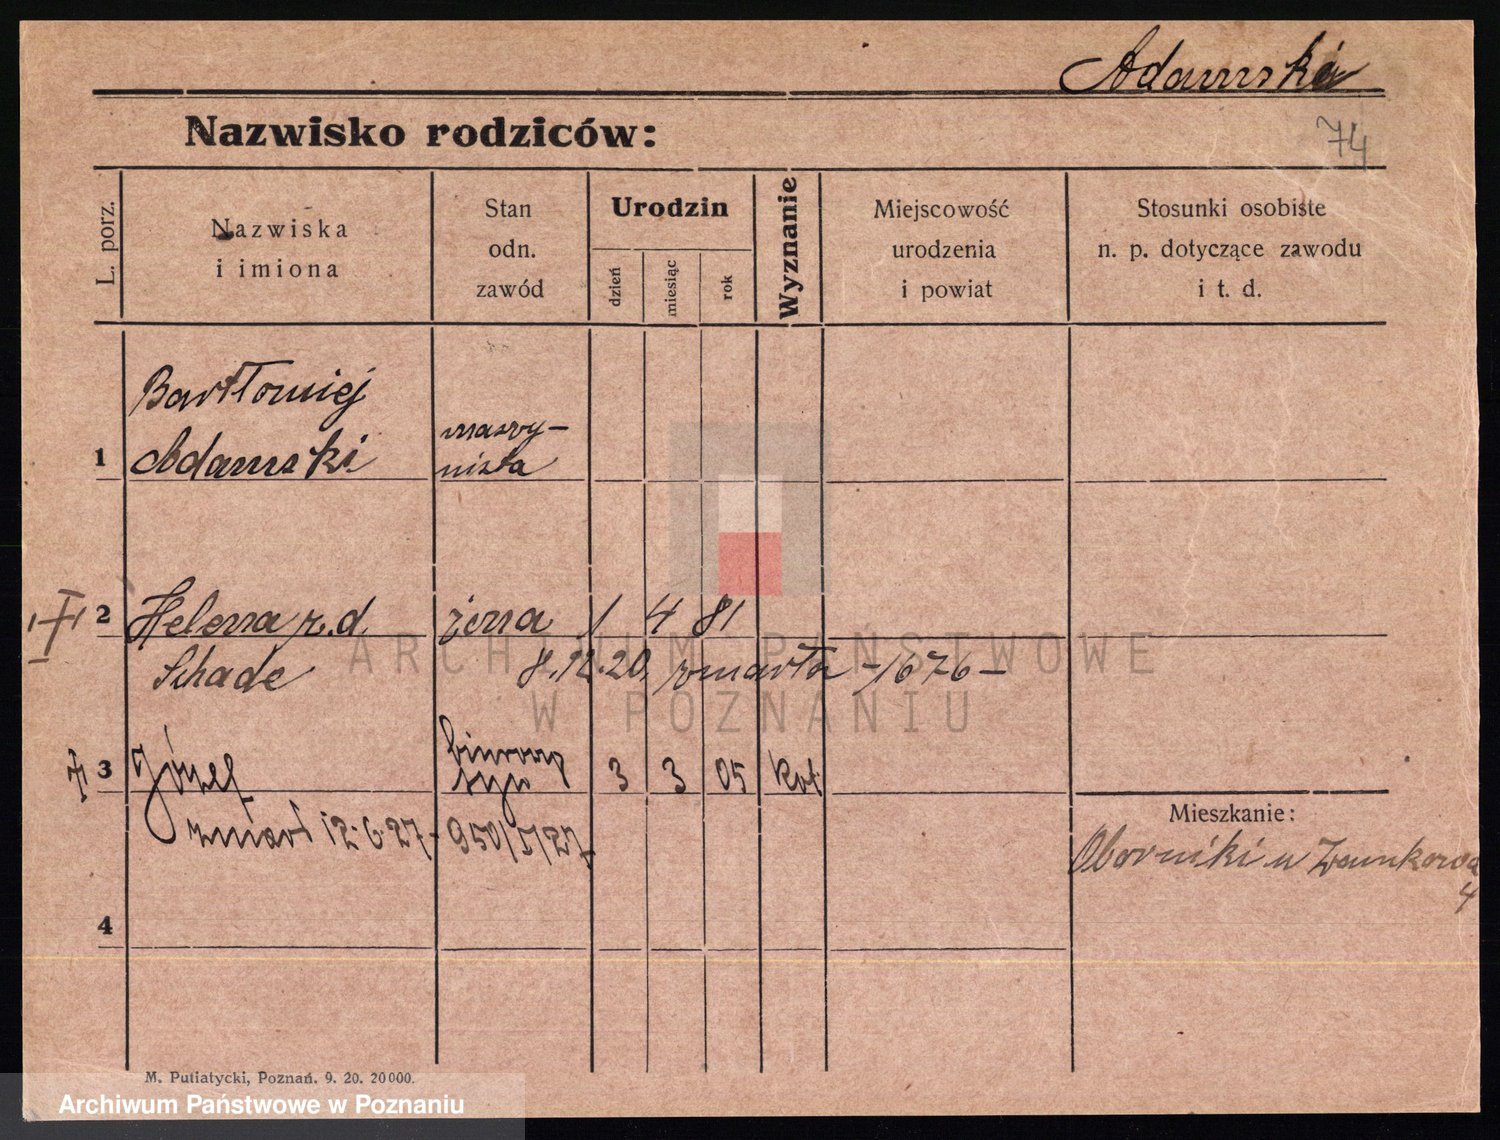 Adamski
Nazwisko rodziców:
74
L. porz.
Nazwiska
i imiona
Stan
odn.
zawód
Urodzin
dzień
miesiąc
rok
Wyznanie
Miejscowość
urodzenia
i powiat
Stosunki osobiste
n. p. dotyczące zawodu
i t. d.
Bartłomiej
1 Adamski
maszy-
nista
2 Helena z. d. żona 1 4 81
Schade 8.12.20. zmarła -1676-
3 Józef
biurowy
3 3 05 kat.
zmarł 12.6.27- 950/I/27
Mieszkanie:
Oborniki u
4
4
M. Putiatycki, Poznań. 9. 20. 20000.
ARCHIWUM PAŃSTWOWE
W POZNANIU
Archiwum Państwowe w Poznaniu